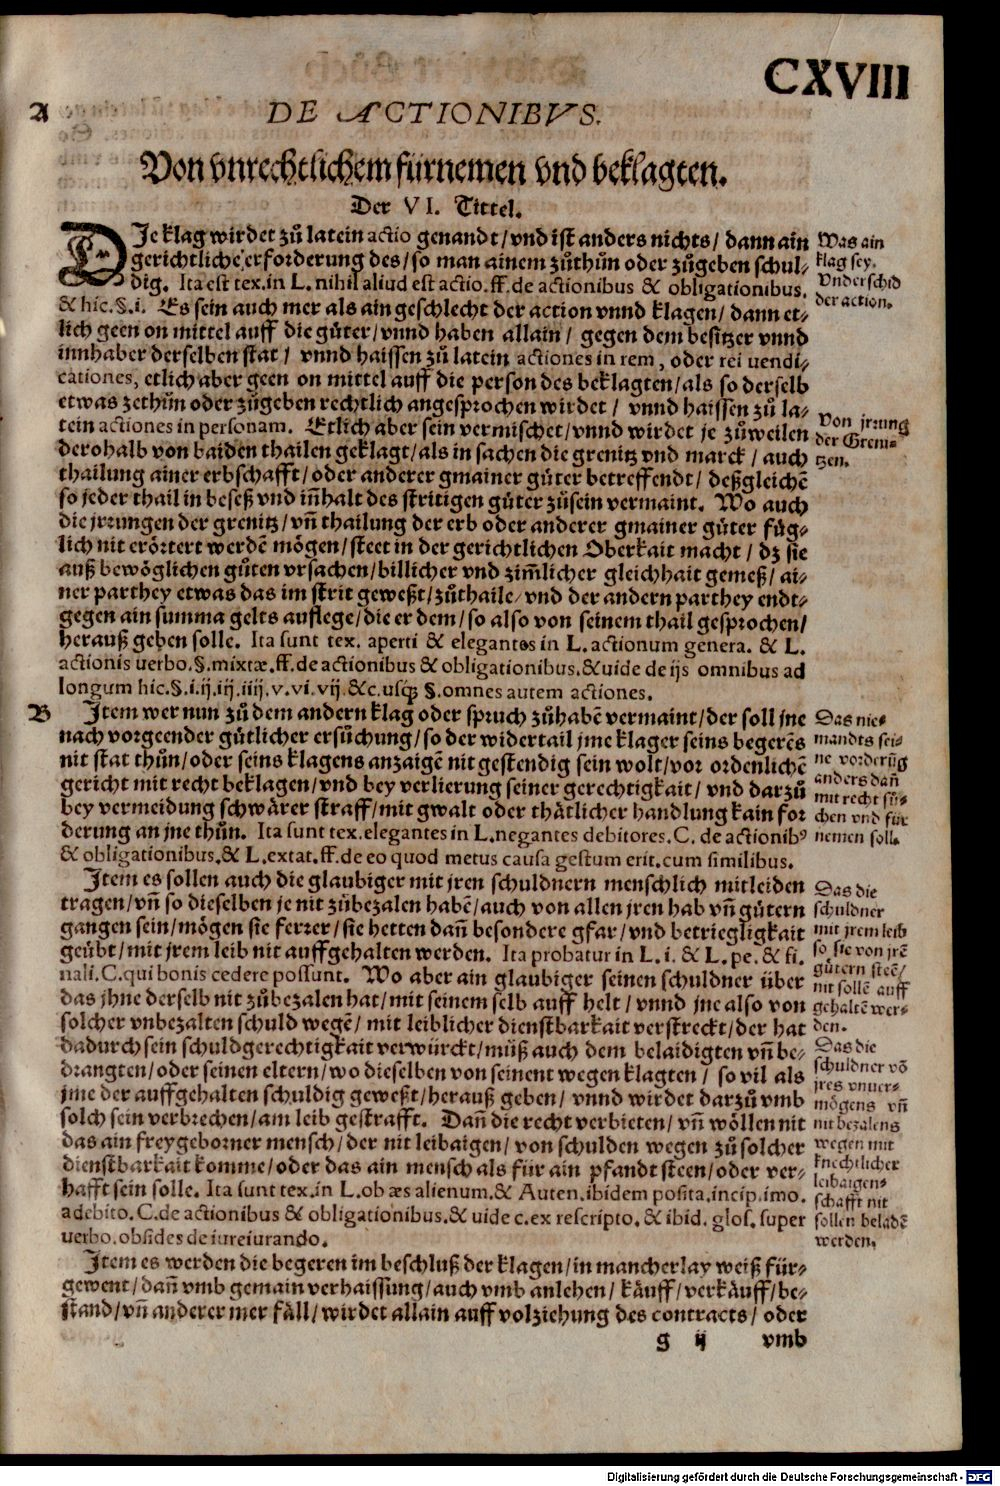 CXVIII
A
DE ACTIONIBVS.
Von vnrechtlichem fürnemen vnd beklagten.
Der VI. Tittel.
DIe klag wirdet zů latein actio genandt / vnd ist anders nichts / dann ain
gerichtliche erforderung des / so man ainem zůthůn oder zůgeben schul⸗
dig. Ita est tex. in L. nihil aliud est actio. ff. de actionibus & obligationibus.
& hic. §. i. Es sein auch mer als ain geschlecht der action vnnd klagen / dann et⸗
lich geen on mittel auff die güter / vnnd haben allain / gegen dem besitzer vnnd
innhaber derselben stat / vnnd haissen zů latein actiones in rem, oder rei uendi⸗
cationes, etlich aber geen on mittel auff die person des beklagten / als so derselb
etwas zethůn oder zůgeben rechtlich angesprochen wirdet / vnnd haissen zů la⸗
tein actiones in personam. Etlich aber sein vermischet / vnnd wirdet je zůweilen
derohalb von baiden thailen geklagt / als in sachen die grenitz vnd marck / auch
thailung ainer erbschafft / oder anderer gmainer güter betreffendt / deßgleichē
so jeder thail in beseß vnd iñhalt des stritigen güter zůsein vermaint. Wo auch
die jrrungen der grenitz / vñ thailung der erb oder anderer gmainer güter füg⸗
lich nit erörtert werdē mögen / steet in der gerichtlichen Oberkait macht / dz sie
auß bewöglichen gůten vrsachen / billicher vnd zim̃licher gleichhait gemeß / ai⸗
ner parthey etwas das im strit geweßt / zůthaile / vnd der andern parthey endt⸗
gegen ain summa gelts auflege / die er dem / so also von seinem thail gesprochen /
herauß geben solle. Ita sunt tex. aperti & elegantes in L. actionum genera. & L.
actionis uerbo. §. mixtæ. ff. de actionibus & obligationibus. & uide de ijs omnibus ad
longum hic. §. i. ij. iij. iiij. v. vi. vij. &c. usq; §. omnes autem actiones.
Was ain
klag sey.
Vnderschid
der action.
Von jrrung
der Greni⸗
tzen.
B
Jtem wer nun zů dem andern klag oder spruch zůhabē vermaint / der soll jne
nach vorgeender gůtlicher ersůchung / so der widertail jme klager seins begerēs
nit stat thůn / oder seins klagens anzaigē nit gestendig sein wolt / vor ordenlichē
gericht mit recht beklagen / vnd bey verlierung seiner gerechtigkait / vnd darzů
bey vermeidung schwärer straff / mit gwalt oder thätlicher handlung kain for
derung an jne thůn. Ita sunt tex. elegantes in L. negantes debitores. C. de actionibꝰ
& obligationibus. & L. extat. ff. de eo quod metus causa gestum erit. cum similibus.
Das nie⸗
mandts sei⸗
ne vorderūg
anders dañ
mit recht sů⸗
chen vnd für
nemen soll.
Jtem es sollen auch die glaubiger mit jren schuldnern menschlich mitleiden
tragen / vñ so dieselben je nit zůbezalen habē / auch von allen jren hab vñ gütern
gangen sein / mögen sie ferrer / sie hetten dañ besondere gfar / vnd betriegligkait
geübt / mit jrem leib nit auffgehalten werden. Ita probatur in L. i. & L. pe. & fi.
nali. C. qui bonis cedere possunt. Wo aber ain glaubiger seinen schuldner über
das jhne derselb nit zůbezalen hat / mit seinem selb auff helt / vnnd jne also von
solcher vnbezalten schuld wegē / mit leiblicher dienstbarkait verstreckt / der hat
dadurch sein schuldgerechtigkait verwürckt / můß auch dem belaidigten vñ be⸗
drangten / oder seinen eltern / wo dieselben von seinent wegen klagten / so vil als
jme der auffgehalten schuldig geweßt / herauß geben / vnnd wirdet darzů vmb
solch sein verbrechen / am leib gestrafft. Dañ die recht verbieten / vñ wöllen nit
das ain freygeborner mensch / der nit leibaigen / von schulden wegen zů solcher
dienstbarkait komme / oder das ain mensch als für ain pfandt steen / oder ver⸗
hafft sein solle. Ita sunt tex. in L. ob æs alienum. & Auten. ibidem posita. incip. imo.
a debito. C. de actionibus & obligationibus. & uide c. ex rescripto. & ibid. glos. super
uerbo. obsides de iureiurando.
Das die
schuldner
mit jrem leib
so sie von jrē
gütern steē /
nit sollē auff
gehaltē wer⸗
den.
Das die
schuldner võ
jres vnuer⸗
mögens vñ
nit bezalens
wegen mit
knechtlicher
leibaigen⸗
schafft nit
sollen beladē
werden.
Jtem es werden die begeren im beschluß der klagen / in mancherlay weiß für⸗
gewent / dañ vmb gemain verhaissung / auch vmb anlehen / käuff / verkäuff / be⸗
stand / vñ anderer mer fäll / wirdet allain auff volziehung des contracts / oder
g ij vmb
Digitalisierung gefördert durch die Deutsche Forschungsgemeinschaft - DFG